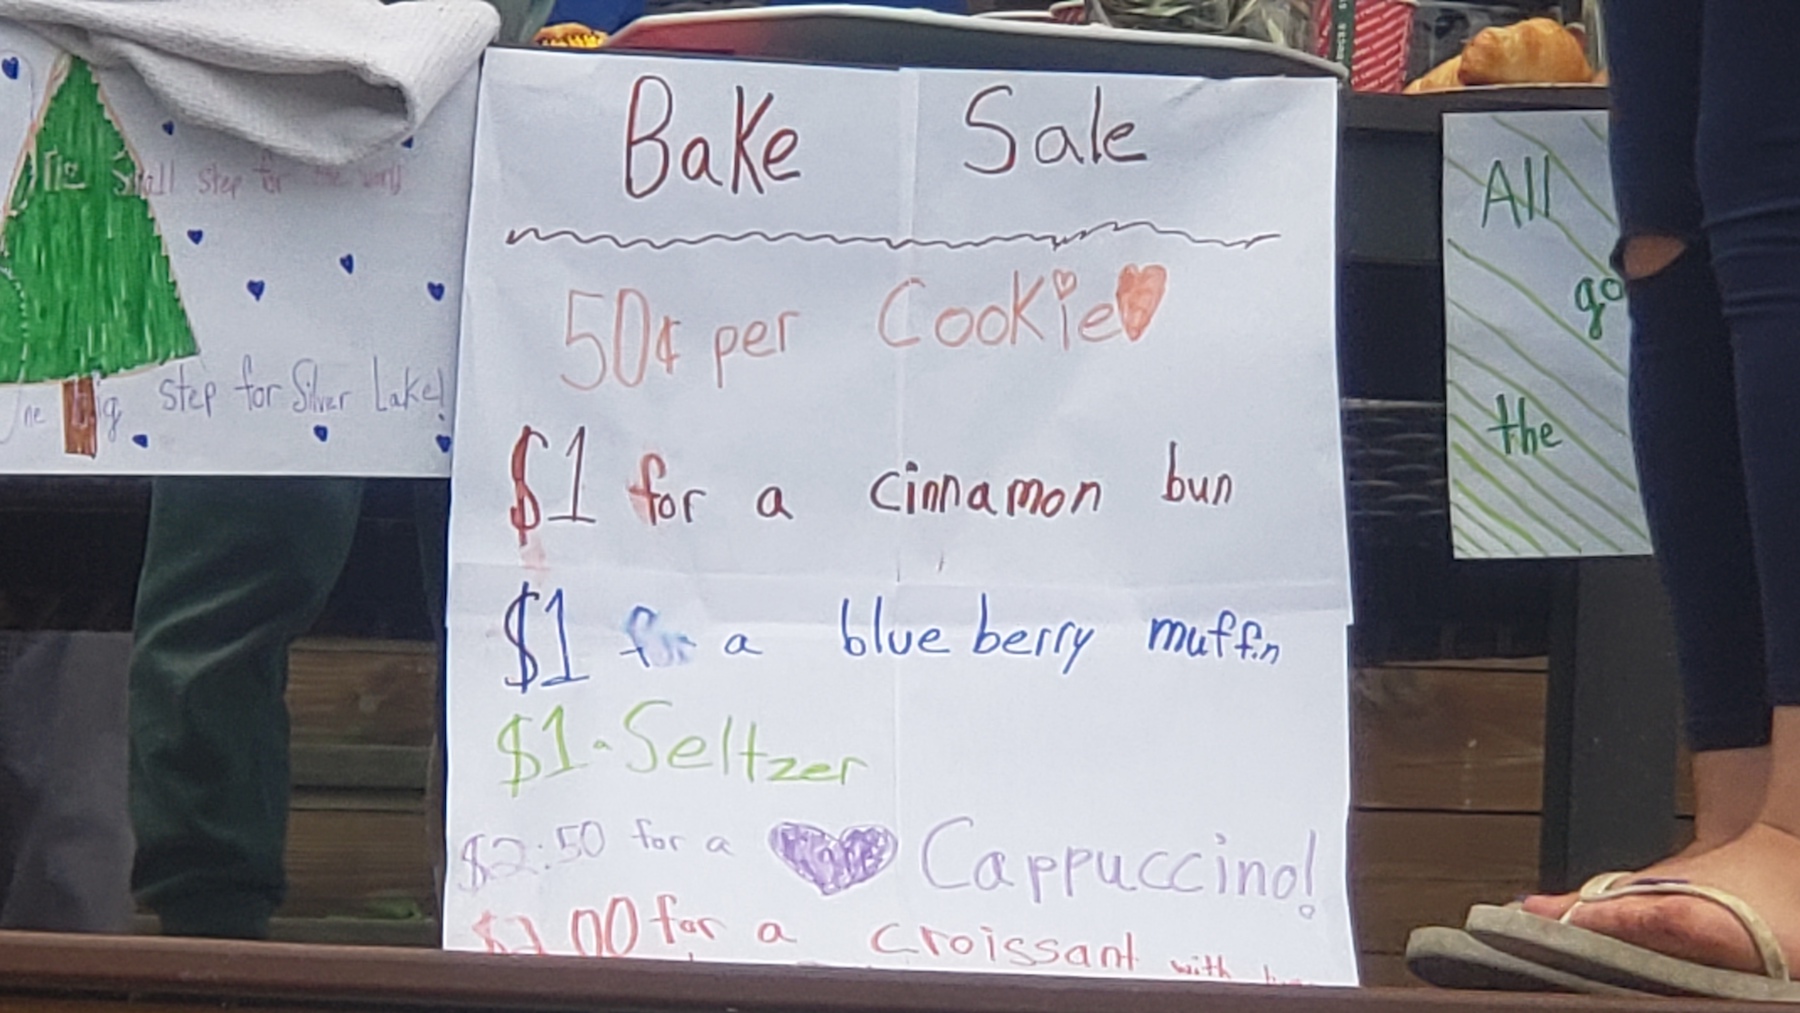 Bake Sale
50¢ per Cookie
$1 for a cinnamon bun
$1 for a blueberry muffin
$1 a Seltzer
$2:50 for a Cappuccino!
00 for a croissant with
One Small step for the world
One Big step for Silver Lake!
All
go
the